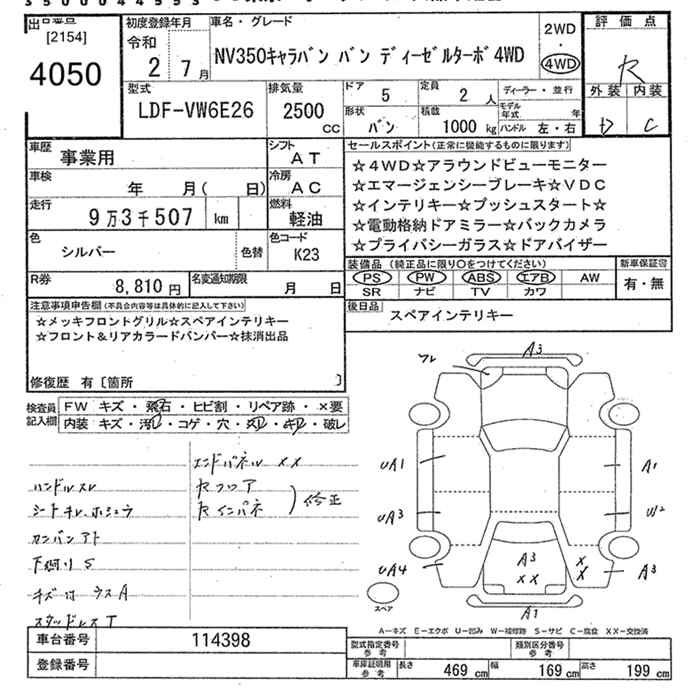 [2154]
4050
初度登録年月
令和
2 7月
車名・グレード
NV350キャラバン バン ディーゼルターボ 4WD
2WD
・
4WD
評価点
R
外装 内装
D C
型式
LDF-VW6E26
排気量
2500
CC
ドア 5
定員 2 人
ディーラー・並行
形状 バン
積載 1000 kg
モデル年式 年
ハンドル 左・右
車歴 事業用
シフト AT
車検 年 月( 日)
冷房 AC
走行 9万3千507 km
燃料 軽油
色 シルバー 色替
色コード K23
R券 8,810 円
名変通知期限 月 日
セールスポイント(正常に機能するものに限ります)
☆4WD☆アラウンドビューモニター
☆エマージェンシーブレーキ☆VDC
☆インテリキー☆プッシュスタート☆
☆電動格納ドアミラー☆バックカメラ
☆プライバシーガラス☆ドアバイザー
装備品(純正品に限り○をつけてください)
新車保証書
PS PW ABS エアB AW
有・無
SR ナビ TV カワ
後日品 スペアインテリキー
注意事項申告欄(不具合内容等は具体的に記入して下さい)
☆メッキフロントグリル☆スペアインテリキー
☆フロント&リアカラードバンパー☆抹消出品
修復歴 有〔箇所 〕
検査員記入欄
FW キズ・飛石・ヒビ割・リペア跡・×要
内装 キズ・汚レ・コゲ・穴・スレ・キレ・破レ
エンドパネル ××
ハンドルスレ
Rフロア
シートキレ、ホシュウ
Rインパネ
修正
カンバンアト
下廻りS
キズ付 ウスA
スタッドレスT
フレ
A3
UA1
A1
UA3
W2
UA4
A3
××
×
×
A3
A1
スペア
A−キズ E−エクボ U−凹み W−補修跡 S−サビ C−腐食 XX−交換済
車台番号 114398
登録番号
型式指定番号 参考
類別区分番号 参考
車庫証明用 参考 長さ 469 cm 幅 169 cm 高さ 199 cm